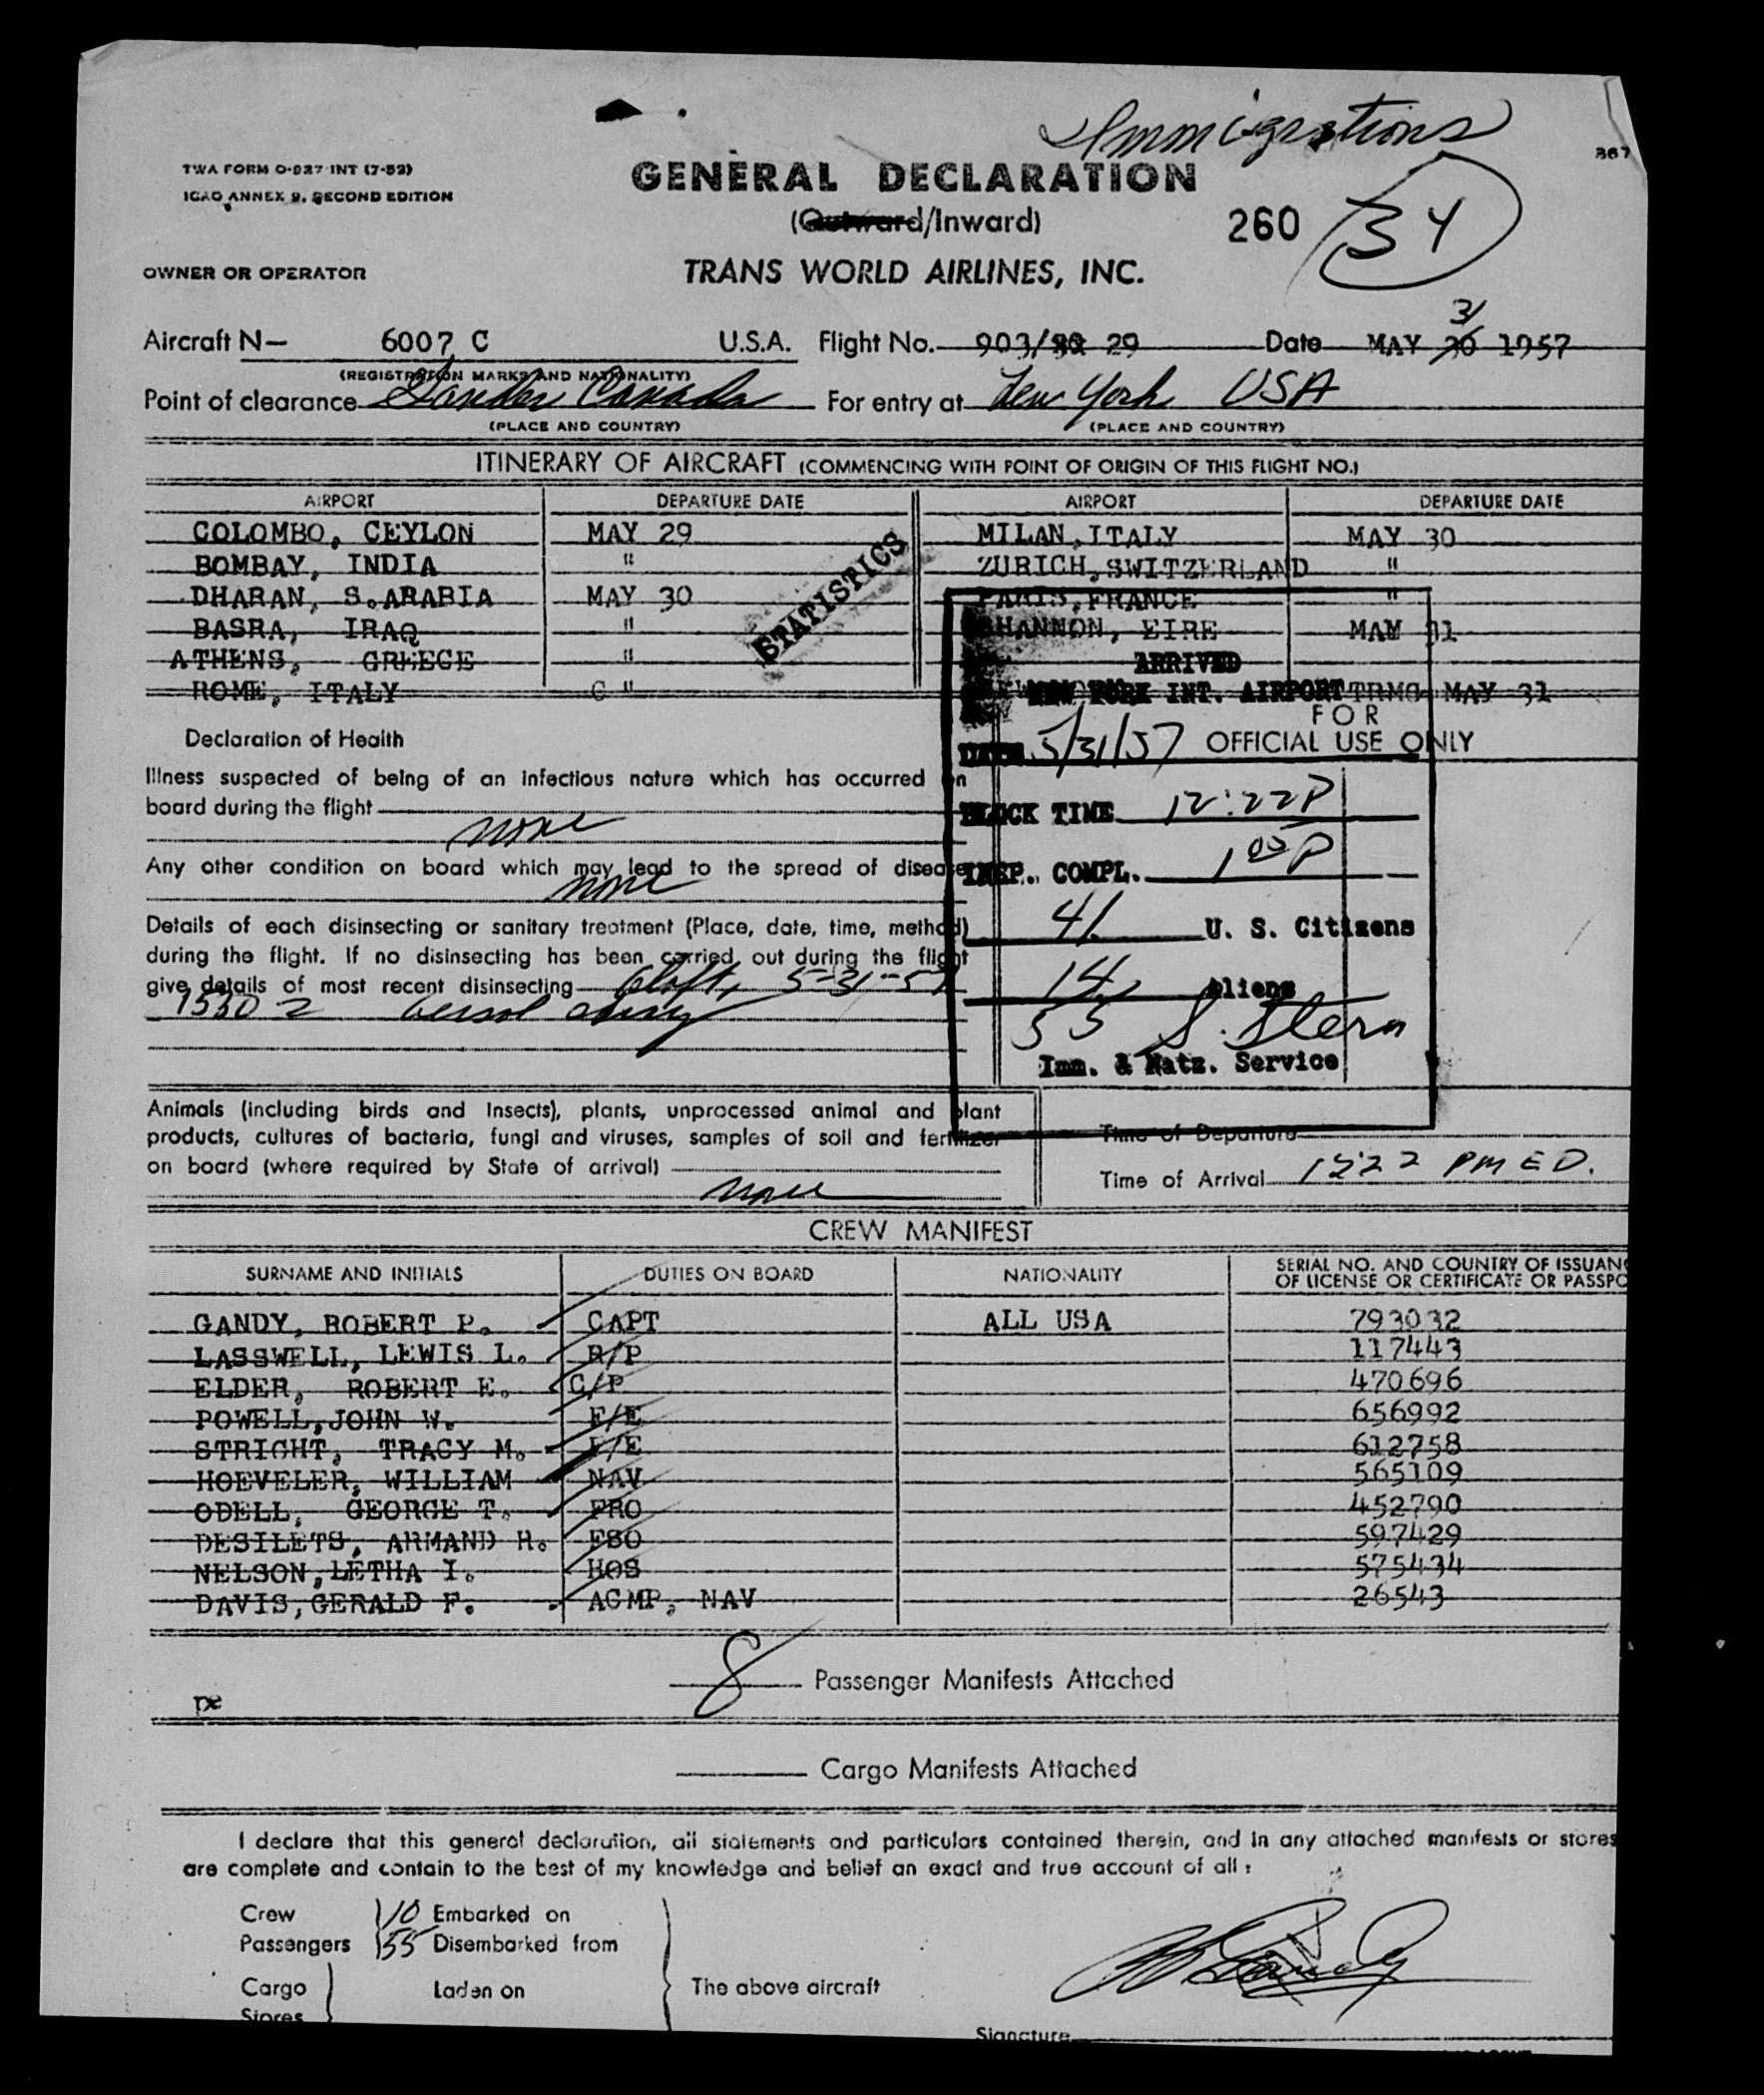 Immigrations
367
TWA FORM O-027 INT (7-52)
GENERAL DECLARATION
ICAO ANNEX 9, SECOND EDITION
(Outward/Inward)
260 34
OWNER OR OPERATOR
TRANS WORLD AIRLINES, INC.
31
Aircraft N— 6007 C U.S.A. Flight No. 903/ 29 Date MAY 30 1957
(REGISTRATION MARKS AND NATIONALITY)
Point of clearance Gander Canada For entry at New York USA
(PLACE AND COUNTRY) (PLACE AND COUNTRY)
ITINERARY OF AIRCRAFT (COMMENCING WITH POINT OF ORIGIN OF THIS FLIGHT NO.)
AIRPORT DEPARTURE DATE AIRPORT DEPARTURE DATE
COLOMBO, CEYLON MAY 29 MILAN, ITALY MAY 30
BOMBAY, INDIA " ZURICH, SWITZERLAND "
DHARAN, S.ARABIA MAY 30 PARIS, FRANCE "
BASRA, IRAQ " SHANNON, EIRE MAY 31
ATHENS, GREECE "
ROME, ITALY " TRMG MAY 31
STATISTICS
ARRIVED
NEW YORK INT. AIRPORT
FOR
OFFICIAL USE ONLY
DATE 5/31/57
BLOCK TIME 12:22P
INSP. COMPL. 1 00 P
41 U. S. Citizens
14 Aliens
55 S. Stern
Imm. & Natz. Service
Declaration of Health
Illness suspected of being of an infectious nature which has occurred on
board during the flight
none
Any other condition on board which may lead to the spread of disease
none
Details of each disinsecting or sanitary treatment (Place, date, time, method)
during the flight. If no disinsecting has been carried out during the flight
give details of most recent disinsecting 5-31-57
1530 Z
Animals (including birds and insects), plants, unprocessed animal and plant
products, cultures of bacteria, fungi and viruses, samples of soil and fertilizer
on board (where required by State of arrival)
none
Time of Departure
Time of Arrival 1222 PM ED.
CREW MANIFEST
SURNAME AND INITIALS DUTIES ON BOARD NATIONALITY SERIAL NO. AND COUNTRY OF ISSUANC
OF LICENSE OR CERTIFICATE OR PASSPO
GANDY, ROBERT P. CAPT ALL USA 793032
LASSWELL, LEWIS L. R/P 117443
ELDER, ROBERT E. C/P 470696
POWELL, JOHN W. F/E 656992
STRIGHT, TRACY M. F/E 612758
HOEVELER, WILLIAM NAV 565109
ODELL, GEORGE T. PRO 452790
DESILETS, ARMAND R. FSO 597429
NELSON, LETHA I. HOS 575434
DAVIS, GERALD F. ACMP, NAV 26543
8 Passenger Manifests Attached
Cargo Manifests Attached
I declare that this general declaration, all statements and particulars contained therein, and in any attached manifests or stores
are complete and contain to the best of my knowledge and belief an exact and true account of all :
Crew 10 Embarked on
Passengers 55 Disembarked from
Cargo Laden on The above aircraft
Stores
Signature